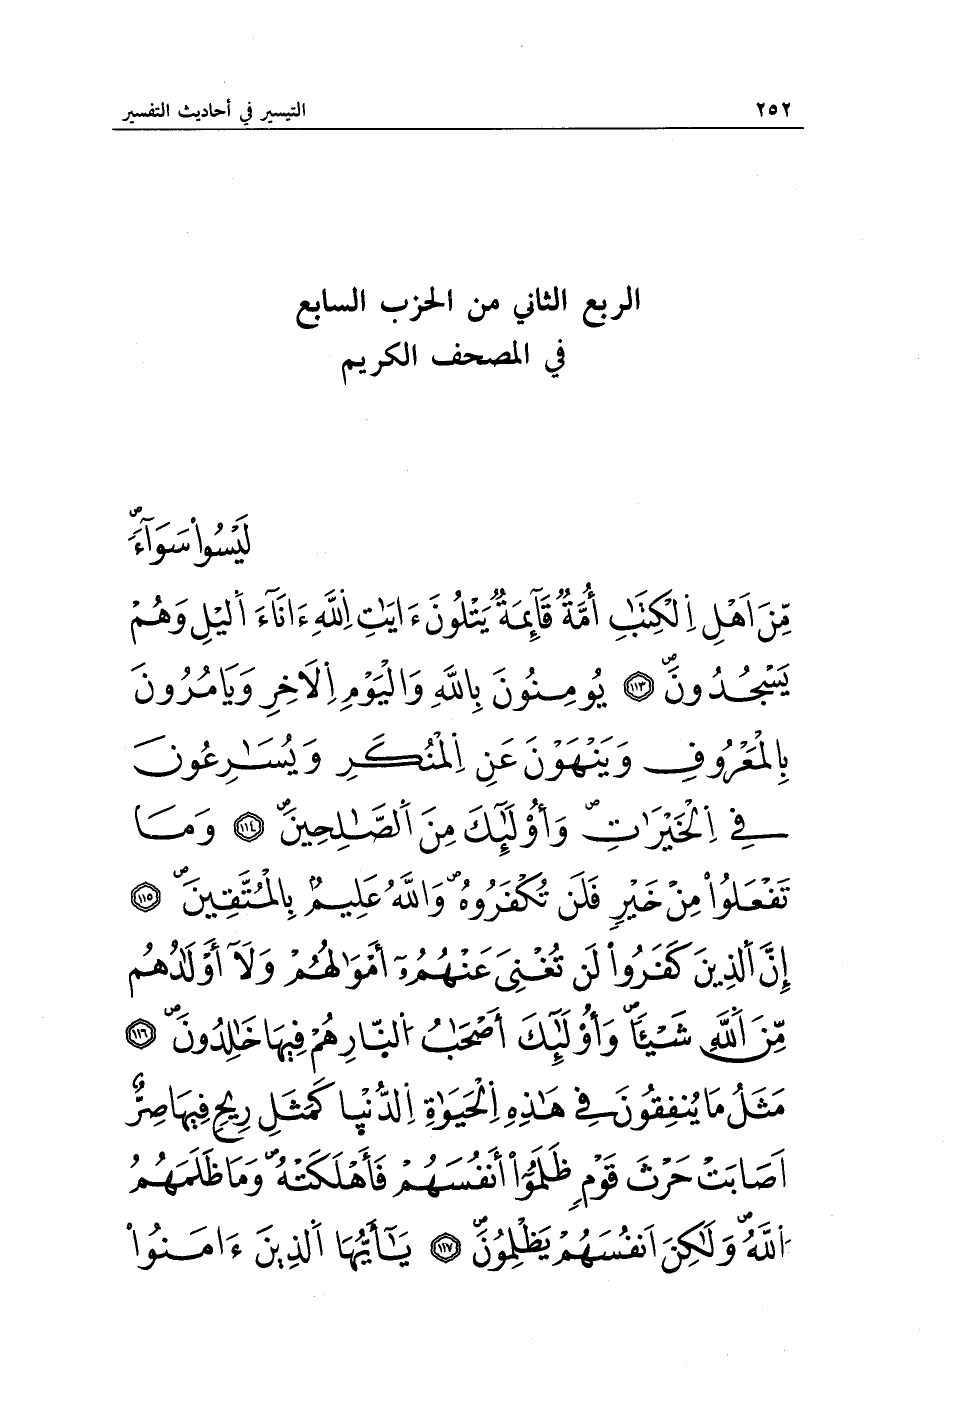 ٢٥٢ التيسير في أحاديث التفسير
الربع الثاني من الحزب السابع
في المصحف الكريم
لَيْسُواْ سَوَآءٗۖ
مِّنَ اَهْلِ اِ۬لْكِتَٰبِ أُمَّةٞ قَآئِمَةٞ يَتْلُونَ ءَايَٰتِ اِ۬للَّهِ ءَانَآءَ اَ۬ليْلِ وَهُمْ
يَسْجُدُونَۖ ١١٣ يُومِنُونَ بِاللَّهِ وَالْيَوْمِ اِ۬لَاخِرِ وَيَامُرُونَ
بِالْمَعْرُوفِ وَيَنْهَوْنَ عَنِ اِ۬لْمُنكَرِ وَيُسَٰرِعُونَ
فِے اِ۬لْخَيْرَٰتِۖ وَأُوْلَٰٓئِكَ مِنَ اَ۬لصَّٰلِحِينَۖ ١١٤ وَمَا
تَفْعَلُواْ مِنْ خَيْرٖ فَلَن تُكْفَرُوهُۖ وَاللَّهُ عَلِيمُۢ بِالْمُتَّقِينَۖ ١١٥
إِنَّ اَ۬لذِينَ كَفَرُواْ لَن تُغْنِىَ عَنْهُمُۥٓ أَمْوَٰلُهُمْ وَلَآ أَوْلَٰدُهُم
مِّنَ اَ۬للَّهِ شَيْـٔاٗۖ وَأُوْلَٰٓئِكَ أَصْحَٰبُ اُ۬لنّ۪ارِ هُمْ فِيهَا خَٰلِدُونَۖ ١١٦
مَثَلُ مَا يُنفِقُونَ فِے هَٰذِهِ اِ۬لْحَيَوٰةِ اِ۬لدُّنْي۪ا كَمَثَلِ رِيحٖ فِيهَا صِرٌّ
اَصَابَتْ حَرْثَ قَوْمٖ ظَلَمُوٓاْ أَنفُسَهُمْ فَأَهْلَكَتْهُۖ وَمَا ظَلَمَهُمُ
اُ۬للَّهُۖ وَلَٰكِنَ اَنفُسَهُمْ يَظْلِمُونَۖ ١١٧ يَٰٓأَيُّهَا اَ۬لذِينَ ءَامَنُواْ